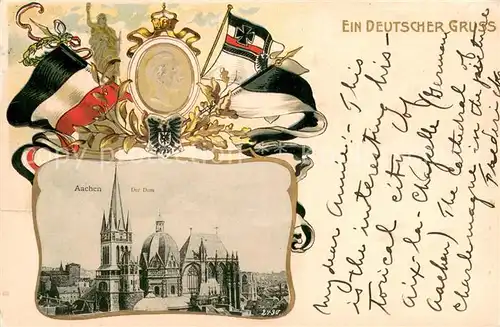 EIN DEUTSCHER GRUSS
Aachen Der Dom
2430
My dear Annie:- This
is the interesting his-
torical city of
Aix-la-Chapelle (German
Aachen) The Cathedral of
Charlemagne in the picture